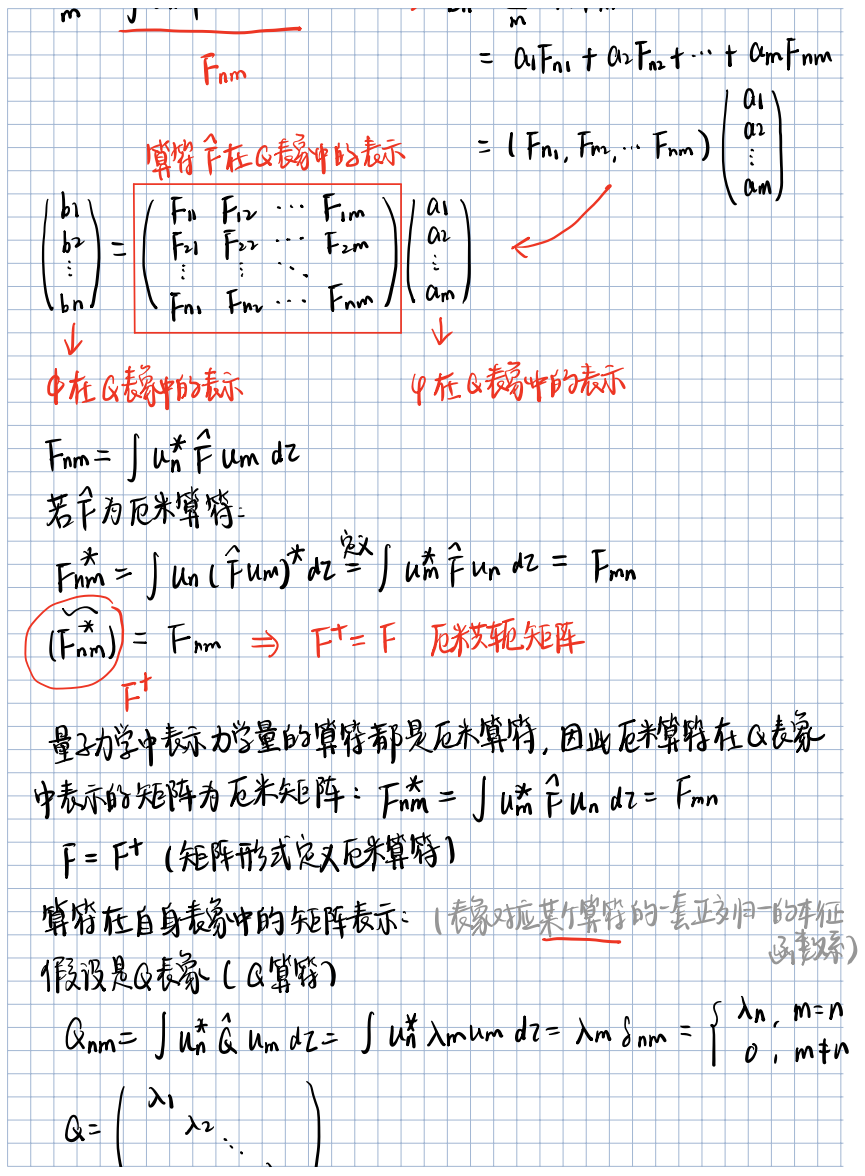 m
F_nm
= a₁F_n₁ + a₂F_n₂ + ⋯ + a_m F_nm
= (F_n₁, F_n₂, ⋯ F_nm) (a₁ a₂ ⋮ a_m)
算符 F̂ 在Q表象中的表示
(b₁ b₂ ⋮ b_n) = (F₁₁ F₁₂ ⋯ F₁m
F₂₁ F₂₂ ⋯ F₂m
⋮ ⋮ ⋱
F_n₁ F_n₂ ⋯ F_nm) (a₁ a₂ ⋮ a_m)
φ在Q表象中的表示 ψ在Q表象中的表示
F_nm = ∫ u_n* F̂ u_m dτ
若F̂为厄米算符:
F_nm* = ∫ u_n (F̂ u_m)* dτ =定义 ∫ u_m* F̂ u_n dτ = F_mn
(F̃_nm*) = F_nm ⇒ F⁺ = F 厄米共轭矩阵
F⁺
量子力学中表示力学量的算符都是厄米算符, 因此厄米算符在Q表象
中表示的矩阵为厄米矩阵: F_nm* = ∫ u_m* F̂ u_n dτ = F_mn
F = F⁺ (矩阵形式定义厄米算符)
算符在自身表象中的矩阵表示: (表象对应某个算符的一套正交归一的本征
函数系)
假设是Q表象 (Q算符)
Q_nm = ∫ u_n* Q̂ u_m dτ = ∫ u_n* λ_m u_m dτ = λ_m δ_nm = { λ_n, m=n
0, m≠n
Q = ( λ₁
λ₂
⋱